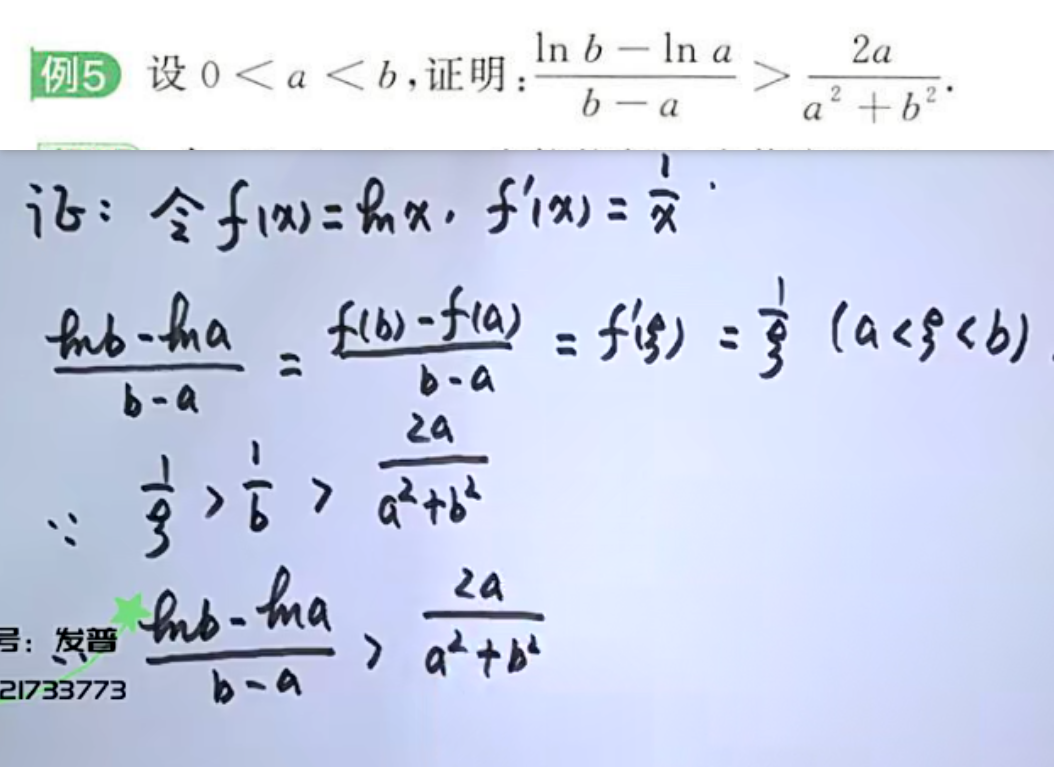 例5 设 0 < a < b,证明: \frac{\ln b - \ln a}{b - a} > \frac{2a}{a^2 + b^2}.
证: 令 f(x) = ln x, f'(x) = \frac{1}{x}.
\frac{\ln b - \ln a}{b - a} = \frac{f(b) - f(a)}{b - a} = f'(ξ) = \frac{1}{ξ} (a < ξ < b).
∵ \frac{1}{ξ} > \frac{1}{b} > \frac{2a}{a^2 + b^2}
∴ \frac{\ln b - \ln a}{b - a} > \frac{2a}{a^2 + b^2}
号: 发普
21733773